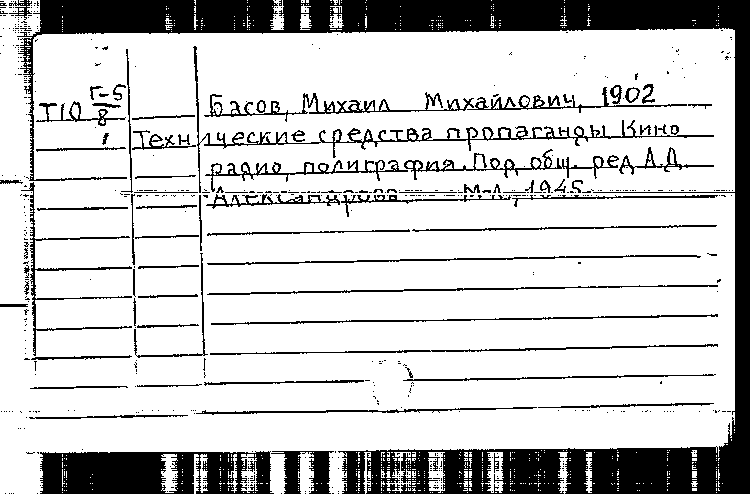 Т10 Г-5/8 Басов, Михаил Михайлович, 1902
1 Технические средства пропаганды Кино
радио, полиграфия. Под общ. ред А.Д.
Александрова. М-Л, 1945